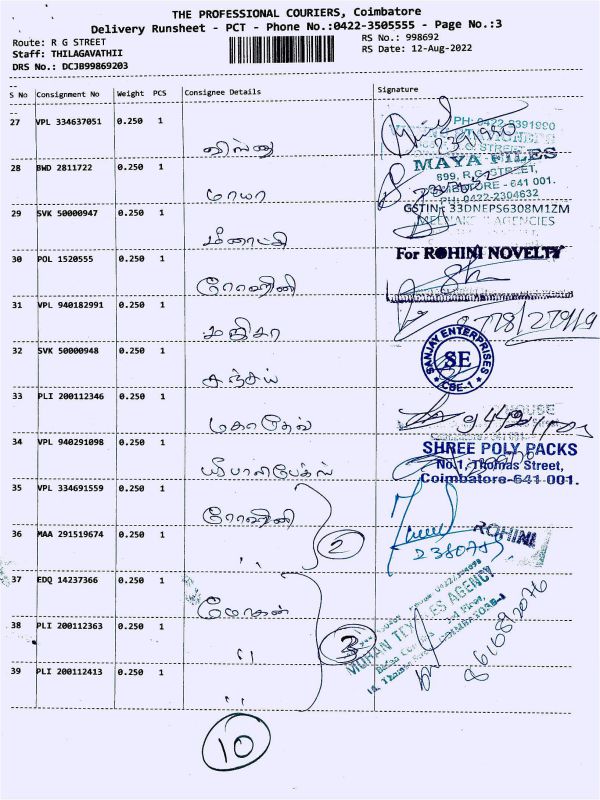 THE PROFESSIONAL COURIERS, Coimbatore
Delivery Runsheet - PCT - Phone No.:0422-3505555 - Page No.:3
Route: R G STREET RS No.: 998692
Staff: THILAGAVATHII RS Date: 12-Aug-2022
DRS No.: DCJB99869203
S No Consignment No Weight PCS Consignee Details Signature
27 VPL 334637051 0.250 1
விஷ்ணு
PH: 0422-2391990
2391990
28 BWD 2811722 0.250 1
மாயா
MAYA FILES
699, R.G. STREET,
COIMBATORE - 641 001.
PH: 0422-2304632
29 SVK 50000947 0.250 1
மீனாட்சி
GSTIN: 33DNEPS6308M1ZM
AGENCIES
30 POL 1520555 0.250 1
ரோஹினி
For ROHINI NOVELTY
31 VPL 940182991 0.250 1
32 SVK 50000948 0.250 1
சஞ்சய்
SANJAY ENTERPRISES
SE
CBE-1
33 PLI 200112346 0.250 1
மகாதேவ்
HOUSE
34 VPL 940291098 0.250 1
SHREE POLY PACKS
No.1, Thomas Street,
Coimbatore-641 001.
35 VPL 334691559 0.250 1
ரோஹினி
ROHINI
36 MAA 291519674 0.250 1
,, 2
238075
37 EDQ 14237366 0.250 1
மோகன்
38 PLI 200112363 0.250 1
,, 3
MOHAN TEXTILES AGENCY
8610892076
39 PLI 200112413 0.250 1
,,
10